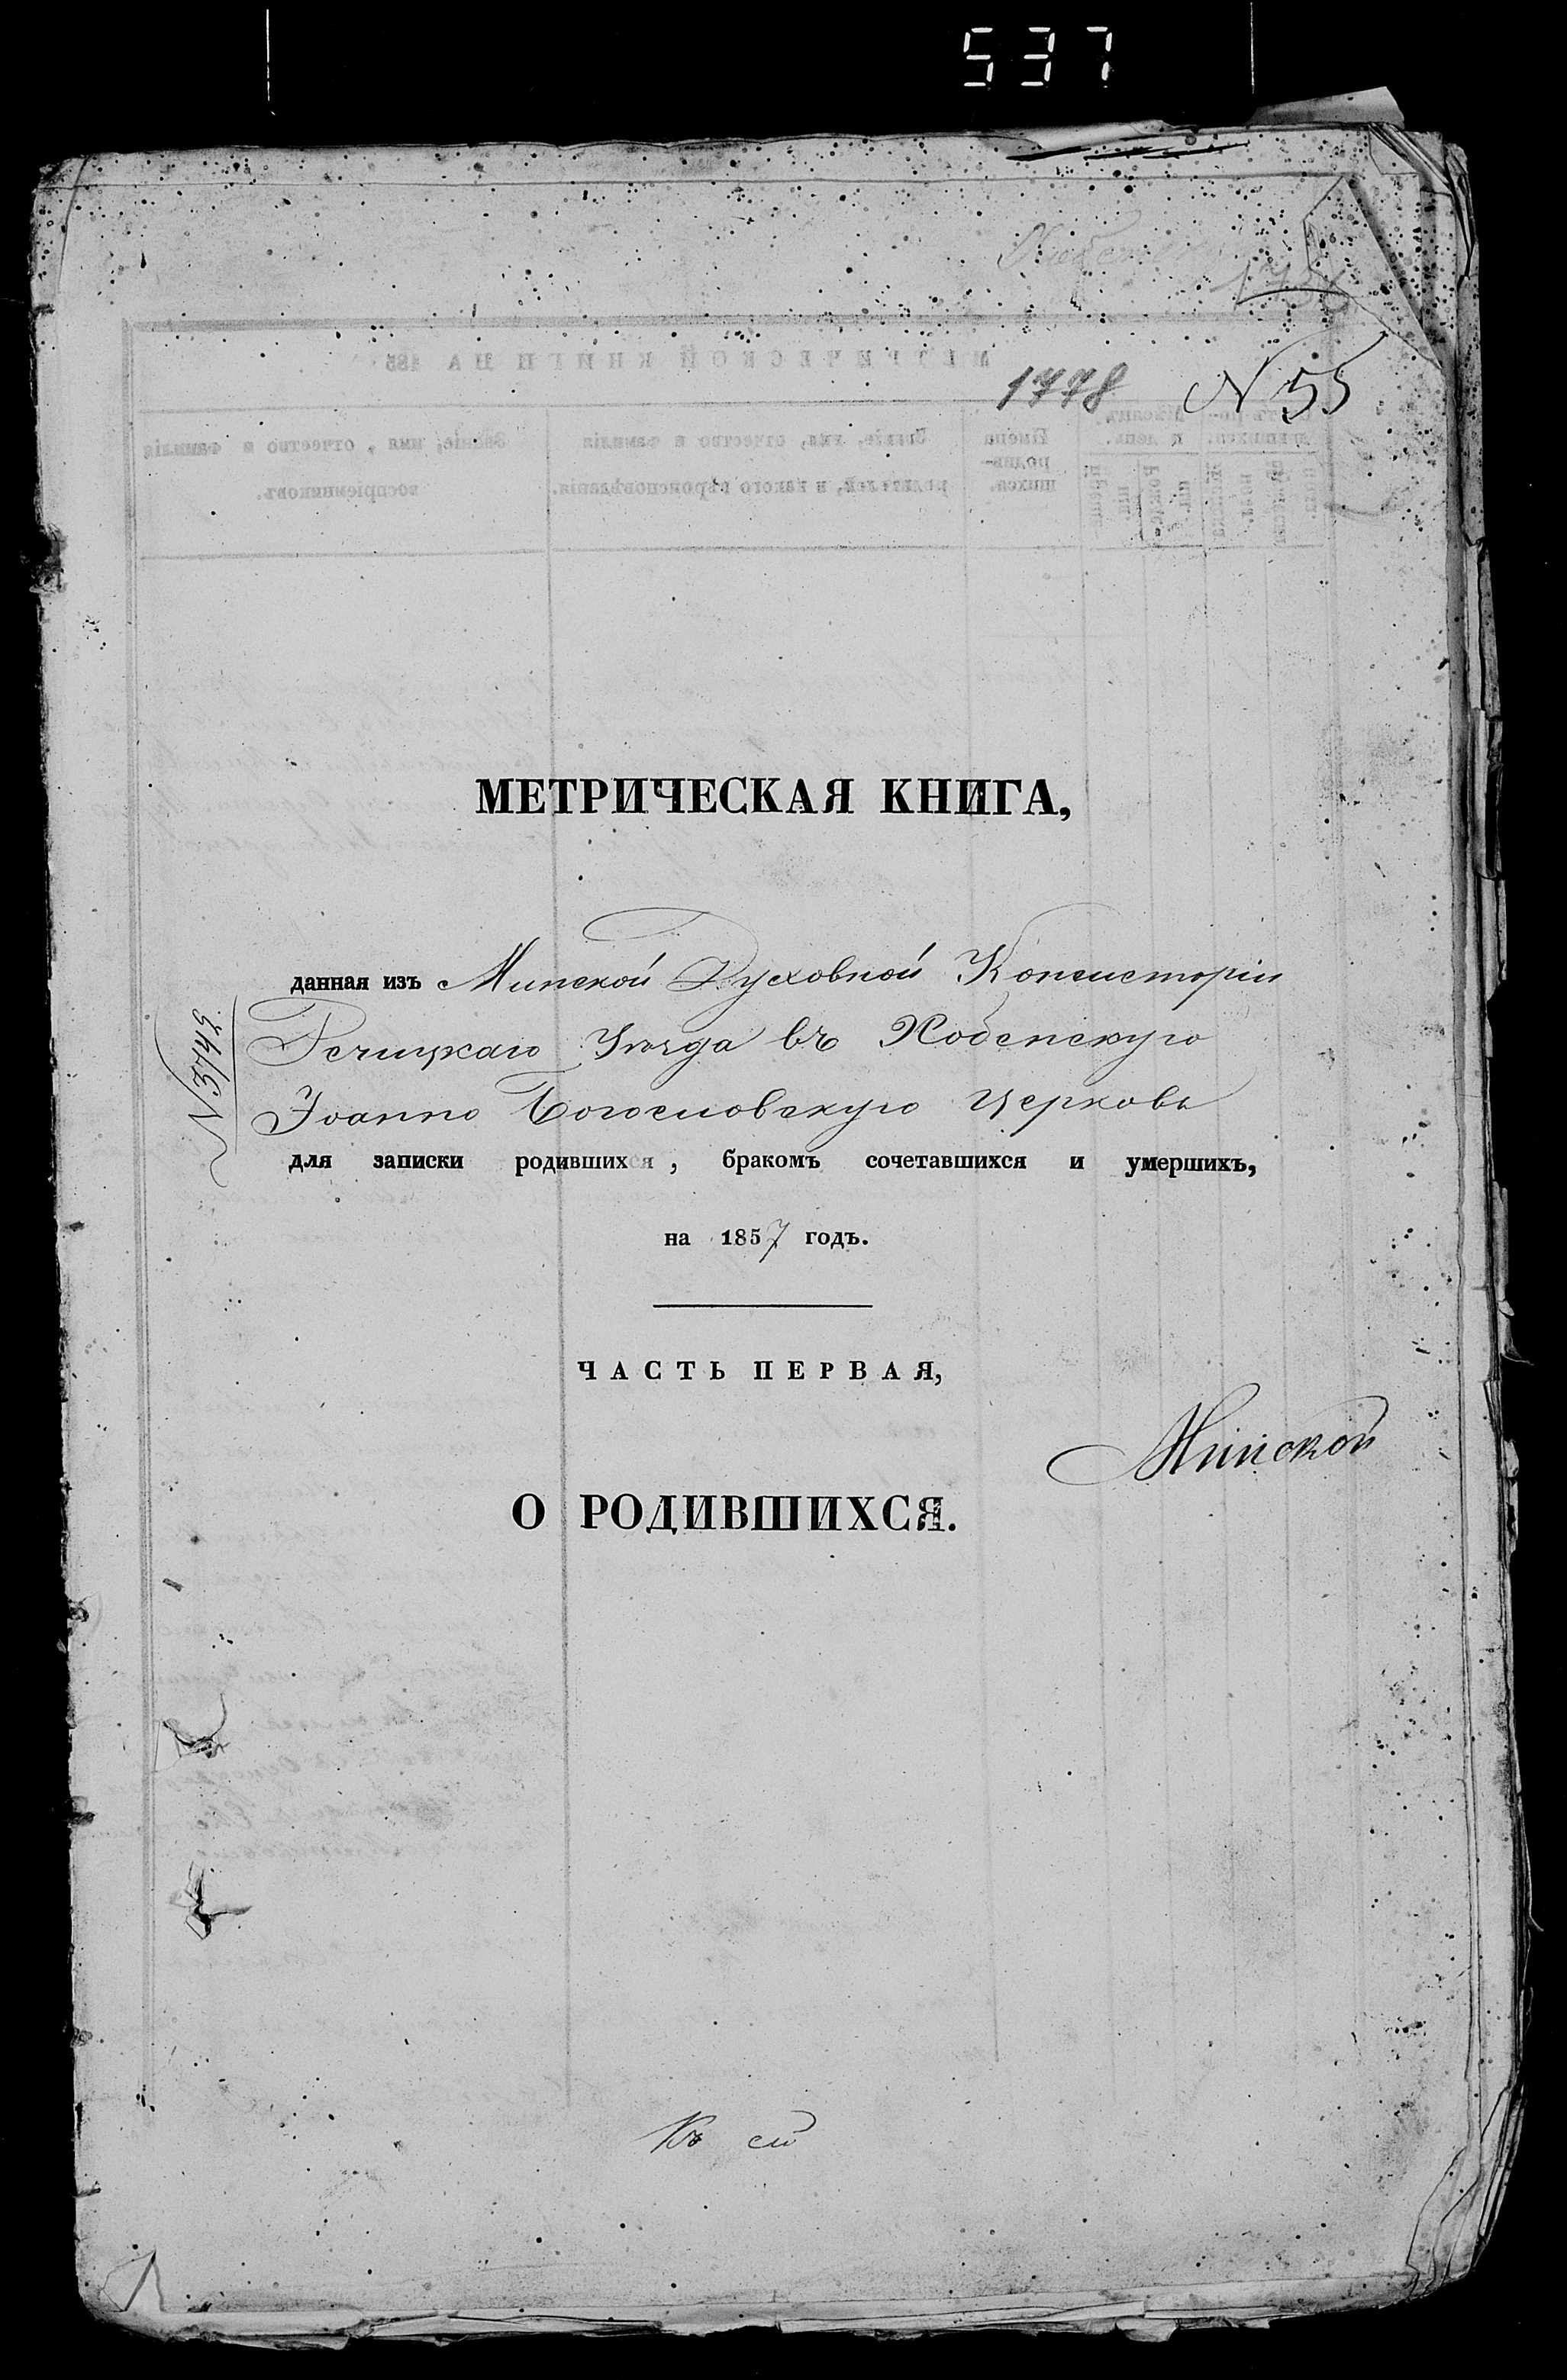 537
1778 N 55
МЕТРИЧЕСКАЯ КНИГА,
данная изъ Минской Духовной Консисторіи
Речицкаго Уѣзда въ Хобенскую
Іоанно Богословскую Церковь
N 3743
для записки родившихся, бракомъ сочетавшихся и умершихъ,
на 1857 годъ.
ЧАСТЬ ПЕРВАЯ,
Минской
О РОДИВШИХСЯ.
Къ сей